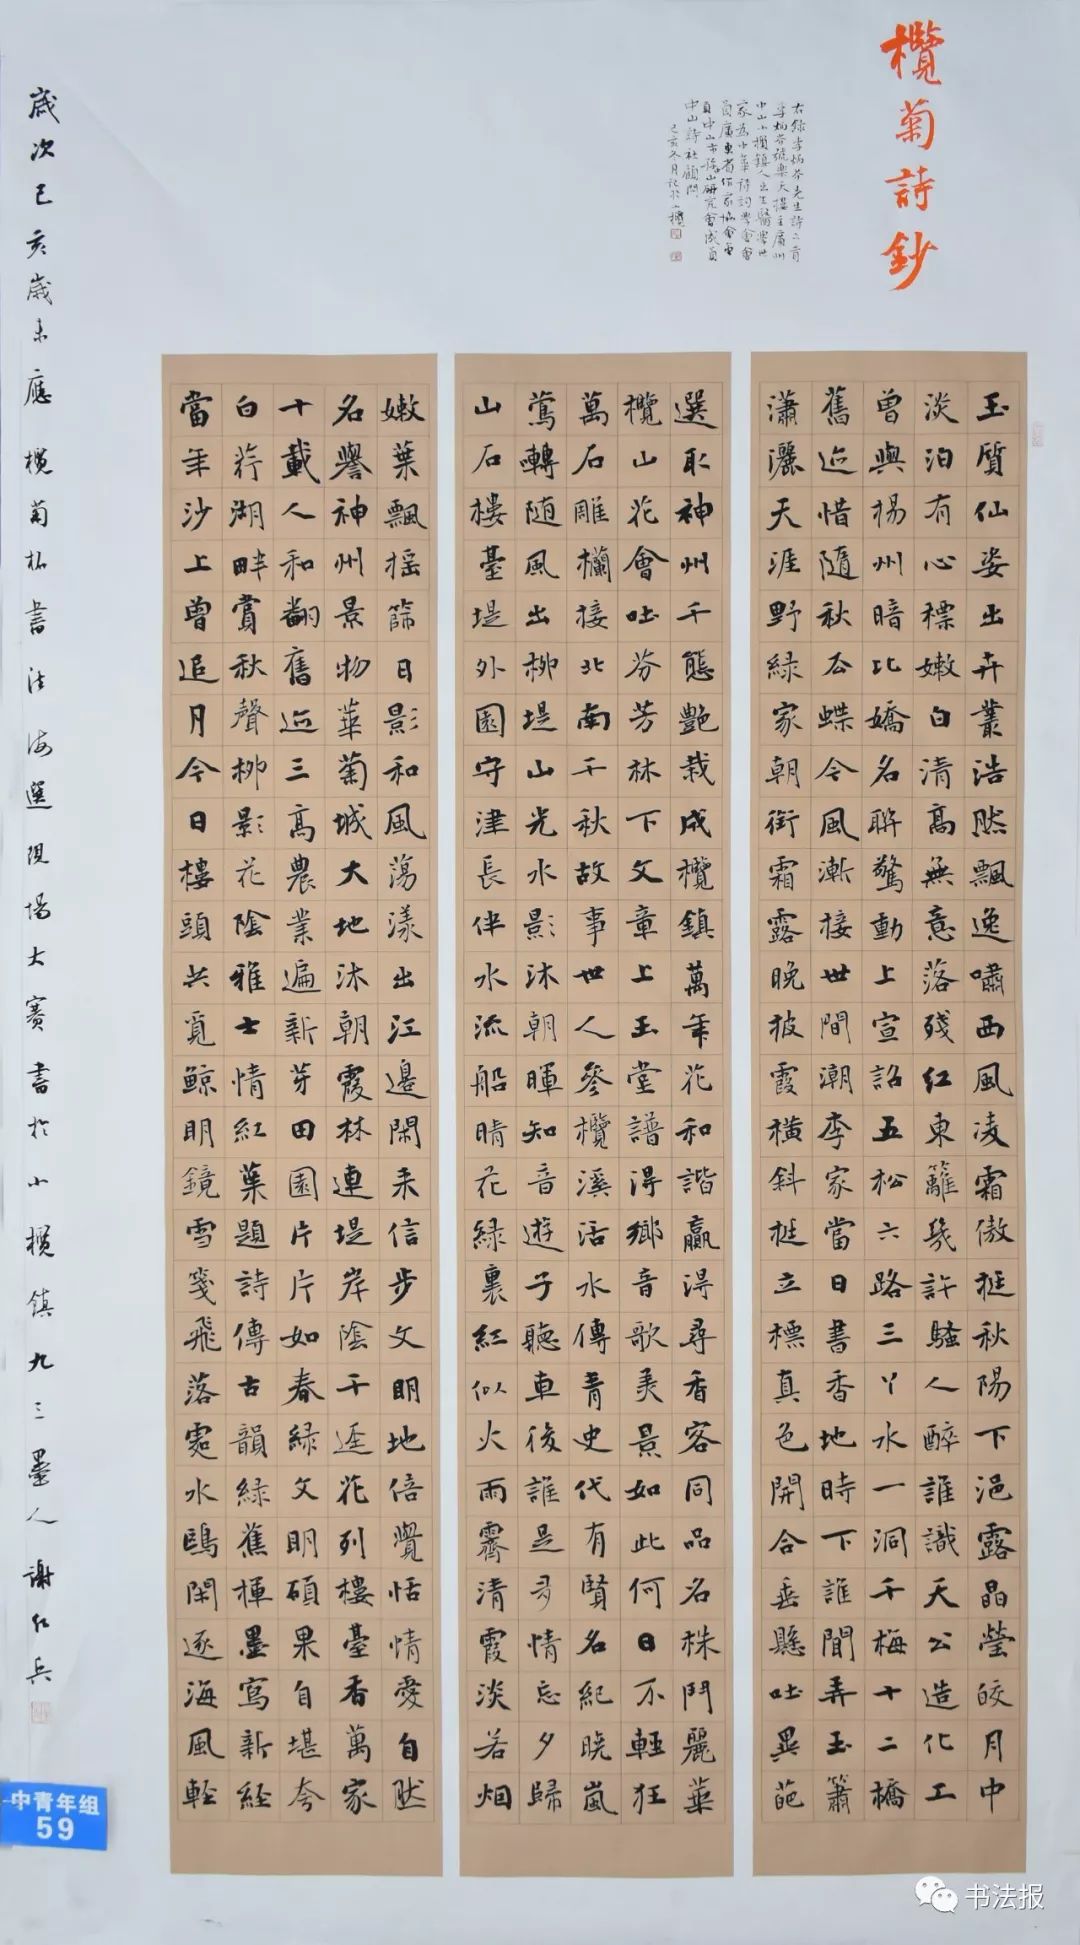 欖菊詩鈔
右錄李炳芬先生詩二首
李炳芬號樂天樓主廣州
中山小欖鎮人出生醫學世
家為中華詩詞學會會
員廣東省作家協會會
員中山市孫山研究會成員
中山詩社顧問
己亥冬月記於小欖
玉質仙姿出卉叢浩然飄逸嘯西風凌霜傲挺秋陽下浥露晶瑩皎月中
淡泊有心標嫩白清高無意落殘紅東籬幾許騷人醉誰識天公造化工
曾與楊州暗比嬌名聯驚動上宣詔五松六路三丫水一洞千梅十二橋
舊迹惜隨秋公蝶今風漸接世間潮李家當日書香地時下誰聞弄玉簫
瀟灑天涯野綠家朝銜霜露晚披霞橫斜挺立標真色開合垂懸吐異葩
選取神州千態艷栽成欖鎮萬年花和諧贏得尋香客同品名株鬥麗華
欖山花會吐芬芳林下文章上玉堂譜得鄉音歌美景如此何日不輕狂
萬石雕欄接北南千秋故事世人參欖溪活水傳青史代有賢名紀曉嵐
鶯囀随風出柳堤山光水影沐朝暉知音遊子聽車後誰是多情忘夕歸
山石樓臺堤外園守津長伴水流船晴花綠裏紅似火雨霽清霞淡若烟
嫩葉飄搖篩日影和風蕩漾出江邊閑来信步文明地倍覺恬情愛自然
名譽神州景物華菊城大地沐朝霞林連堤岸陰千逕花列樓臺香萬家
十載人和翻舊迹三高農業遍新芽田園片片如春綠文明碩果自堪夸
白荇湖畔賞秋聲柳影花陰雅士情紅葉題詩傳古韻綠蕉揮墨寫新經
當年沙上曾追月今日樓頭共覓鯨明鏡雪箋飛落處水鷗閑逐海風輕
歲次己亥歲末應欖菊杯書法海選現場大賽書於小欖鎮九三墨人謝紅兵
中青年组
59
书法报